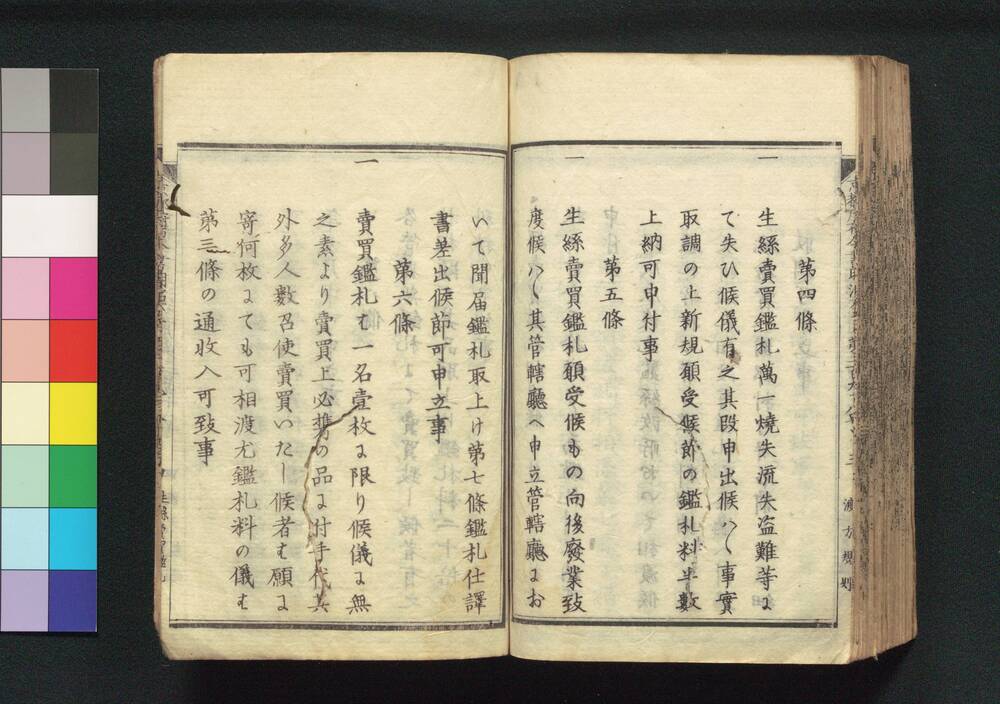 第四條
一 生絲賣買鑑札萬一燒失流失盗難等ニ
て失ひ候儀有之其段申出候ハヽ事實
取調の上新規願受候節の鑑札料半數
上納可申付事
第五條
一 生絲賣買鑑札願受候もの向後廢業致
度候ハヽ其管轄廳へ申立管轄廳におゐ
いて聞届鑑札取上け第七條鑑札仕譯
書差出候節可申立事
第六條
一 賣買鑑札も一名壹枚に限り候儀に無
之素より賣買上必携の品に付手代其
外多人數召使賣買いたし候者も願に
寄何枚にても可相渡尤鑑札料の儀も
第三條の通收入可致事
渡方規則